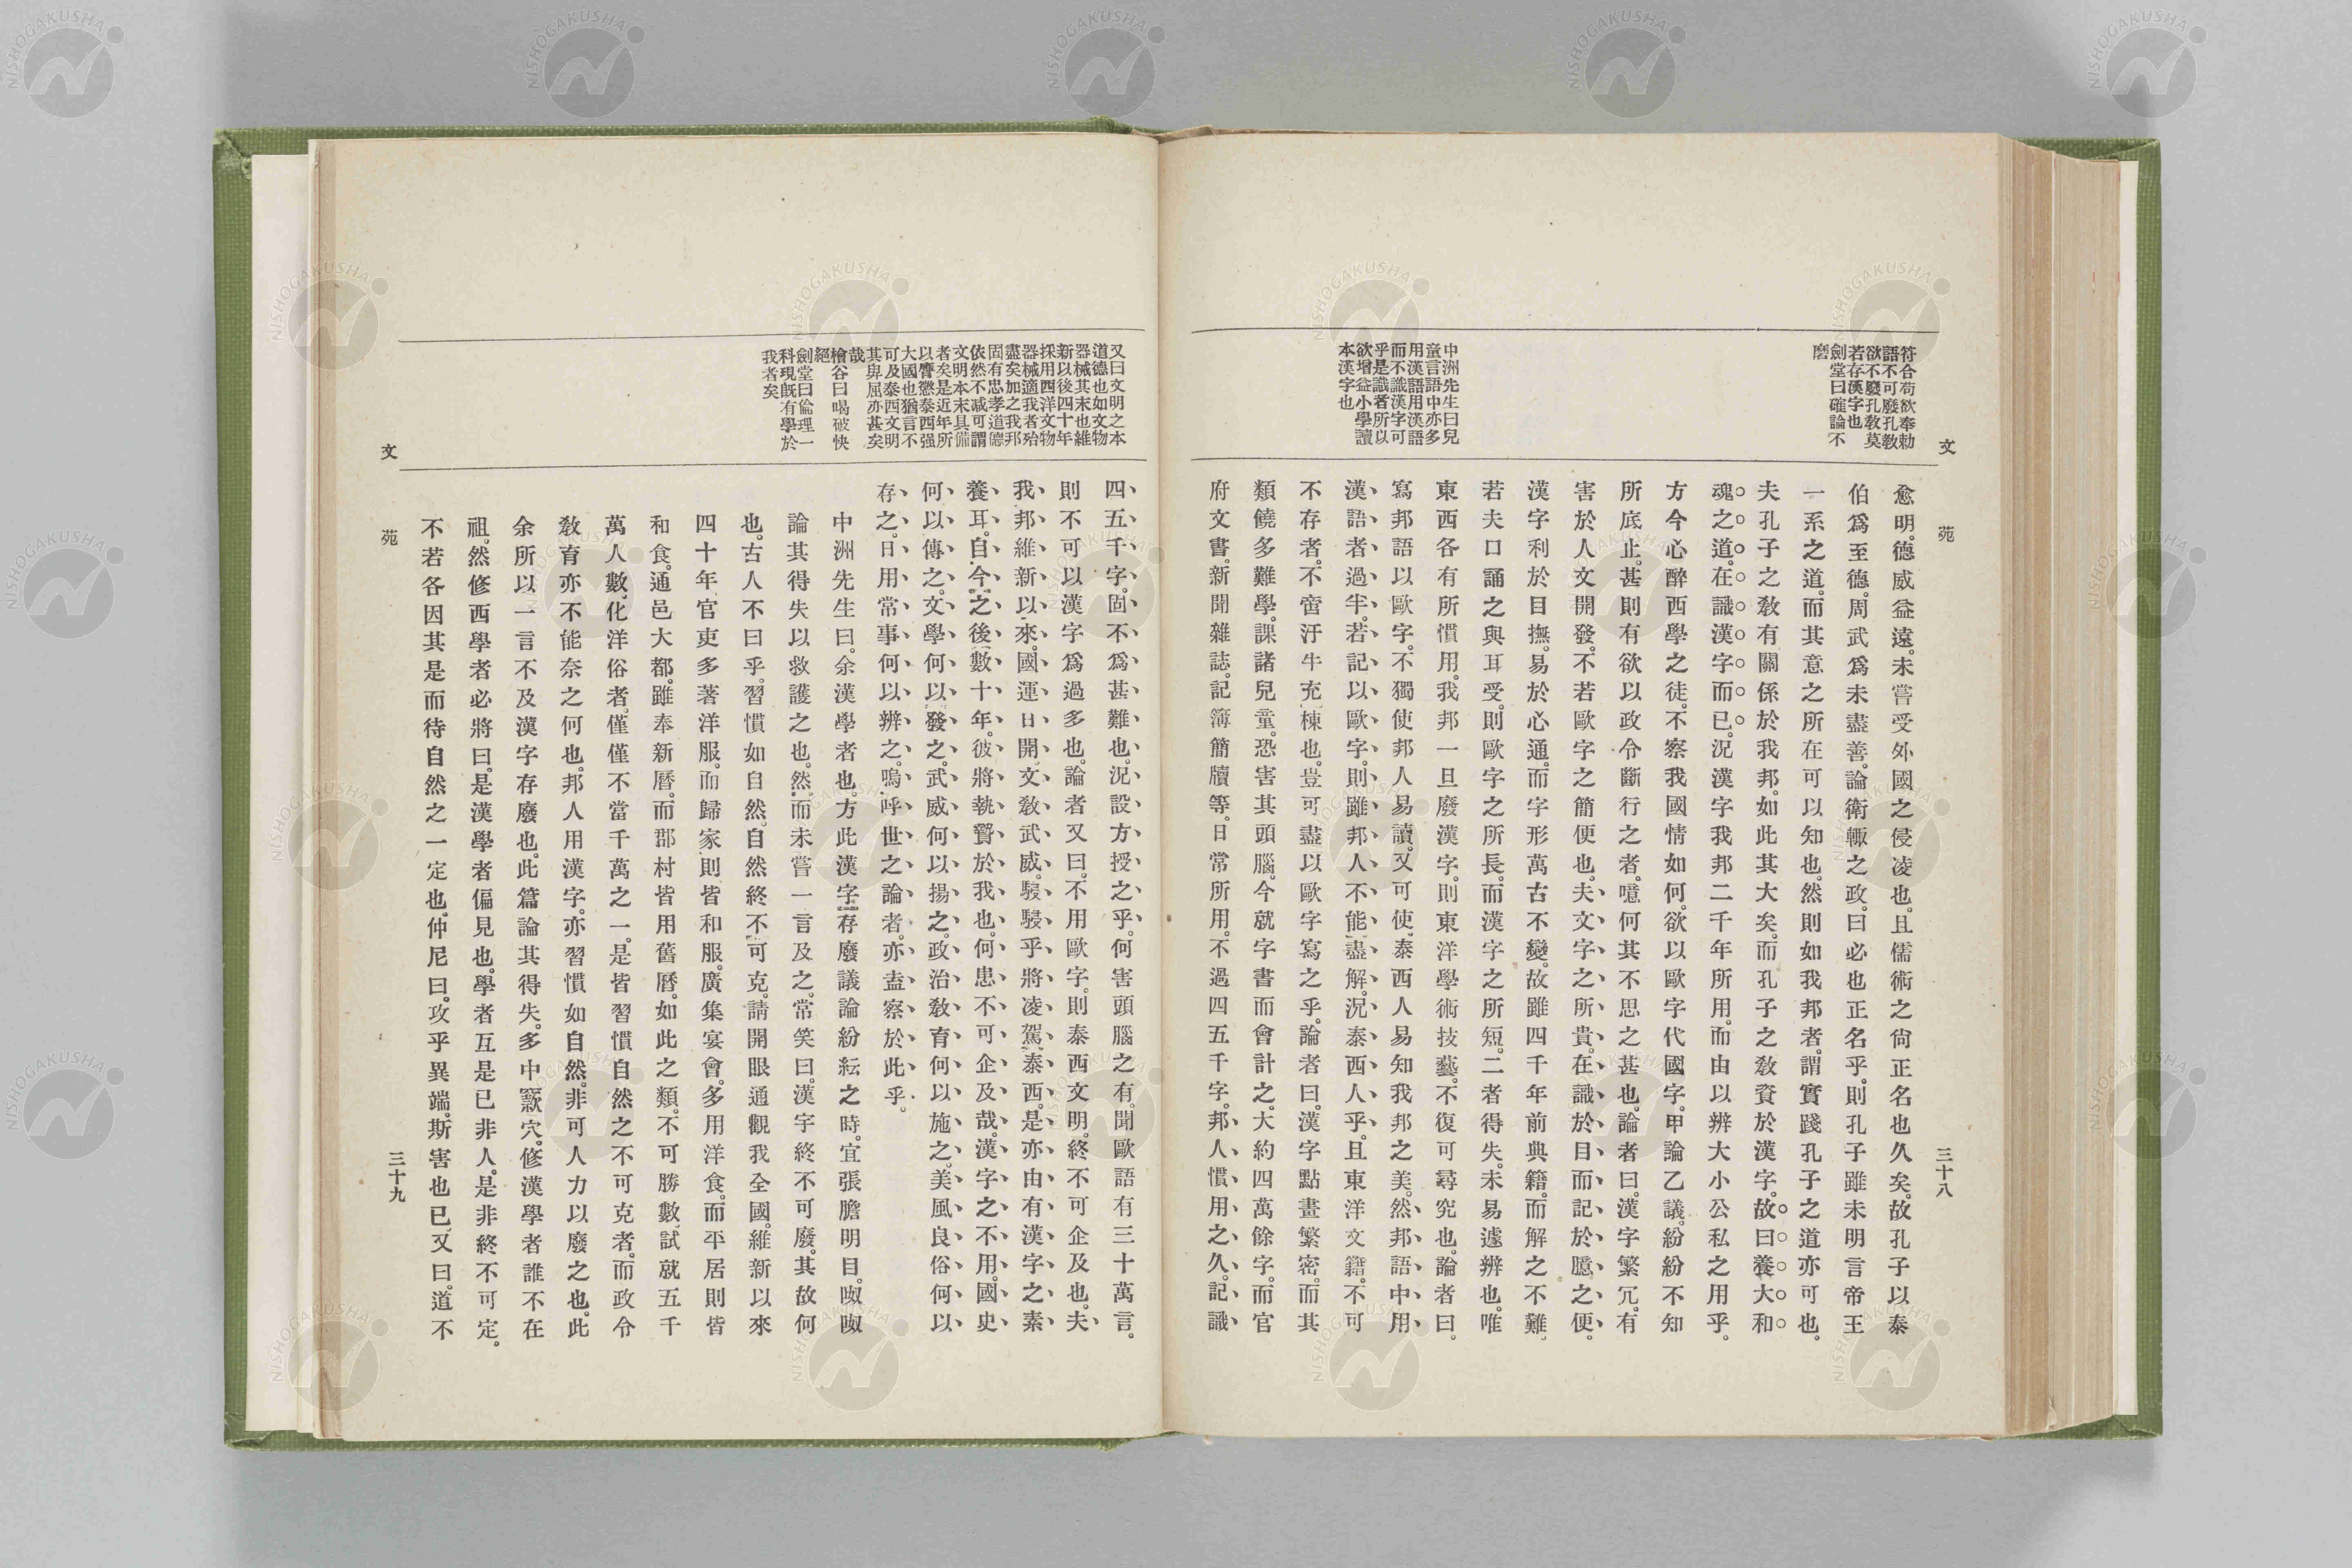 文苑
三十八
符合苟欲奉勅
語不可廢孔教
欲不廢孔教莫
若存漢字也
劍堂曰確論不
磨
中洲先生曰兒
童言語中亦多
用漢語用漢語
而不識漢字可
乎是識者所以
欲增益小學讀
本漢字也
愈明。德威益遠。未嘗受外國之侵凌也。且儒術之尙正名也久矣。故孔子以泰
伯爲至德。周武爲未盡善。論衛輙之政。曰必也正名乎。則孔子雖未明言帝王
一系之道。而其意之所在可以知也。然則如我邦者。謂實踐孔子之道亦可也。
夫孔子之敎有關係於我邦。如此其大矣。而孔子之敎資於漢字。故曰養大和
魂之道。在識漢字而已。況漢字我邦二千年所用。而由以辨大小公私之用乎。
方今心醉西學之徒。不察我國情如何。欲以歐字代國字。甲論乙議。紛紛不知
所底止。甚則有欲以政令斷行之者。噫何其不思之甚也。論者曰。漢字繁冗。有
害於人文開發。不若歐字之簡便也。夫文字之所貴。在識於目而記於臆之便。
漢字利於目撫。易於心通。而字形萬古不變。故雖四千年前典籍。而解之不難。
若夫口誦之與耳受。則歐字之所長。而漢字之所短。二者得失。未易遽辨也。唯
東西各有所慣用。我邦一旦廢漢字。則東洋學術技藝。不復可尋究也。論者曰。
寫邦語以歐字。不獨使邦人易讀。又可使泰西人易知我邦之美。然邦語中用
漢語者過半。若記以歐字。則雖邦人不能盡解。況泰西人乎。且東洋文籍。不可
不存者。不啻汗牛充棟也。豈可盡以歐字寫之乎。論者曰。漢字點畫繁密。而其
類饒多難學。課諸兒童。恐害其頭腦。今就字書而會計之。大約四萬餘字。而官
府文書。新聞雜誌。記簿簡牘等。日常所用。不過四五千字。邦人慣用之久。記識
文苑
三十九
又曰文明之本
道德也如文物
器械其末也維
新以後四十年
採用西洋文物
器械適我者殆
盡矣加之我邦
固有忠孝道德
依然不减可謂
文明本末具備
者矣是近年所
以膺懲泰西强
大國也猶言不
可及泰西文明
其卑屈亦甚矣
哉
檜谷曰喝破快
絕
劍堂曰倫理一
科現旣有學於
我者矣
四五千字。固不爲甚難也。況設方授之乎。何害頭腦之有。聞歐語有三十萬言。
則不可以漢字爲過多也。論者又曰。不用歐字。則泰西文明。終不可企及也。夫
我邦維新以來。國運日開。文敎武威。駸駸乎將凌駕泰西。是亦由有漢字之素
養耳。自今之後數十年。彼將執贄於我也。何患不可企及哉。漢字之不用。國史
何以傳之。文學何以發之。武威何以揚之。政治敎育何以施之。美風良俗何以
存之。日用常事何以辨之。嗚呼世之論者。亦盍察於此乎。
中洲先生曰。余漢學者也。方此漢字存廢議論紛紜之時。宜張膽明目。呶呶
論其得失以救護之也。然而未嘗一言及之。常笑曰。漢字終不可廢。其故何
也。古人不曰乎。習慣如自然。自然終不可克。請開眼通觀我全國。維新以來
四十年官吏多著洋服。而歸家則皆和服。廣集宴會。多用洋食。而平居則皆
和食。通邑大都。雖奉新曆。而郡村皆用舊曆。如此之類。不可勝數。試就五千
萬人數。化洋俗者。僅僅不當千萬之一。是皆習慣自然之不可克者。而政令
敎育亦不能奈之何也。邦人用漢字。亦習慣如自然。非可人力以廢之也。此
余所以一言不及漢字存廢也。此篇論其得失。多中窾穴。修漢學者誰不在
祖。然修西學者必將曰。是漢學者偏見也。學者互是已非人。是非終不可定。
不若各因其是而待自然之一定也。仲尼曰。攻乎異端。斯害也已。又曰。道不